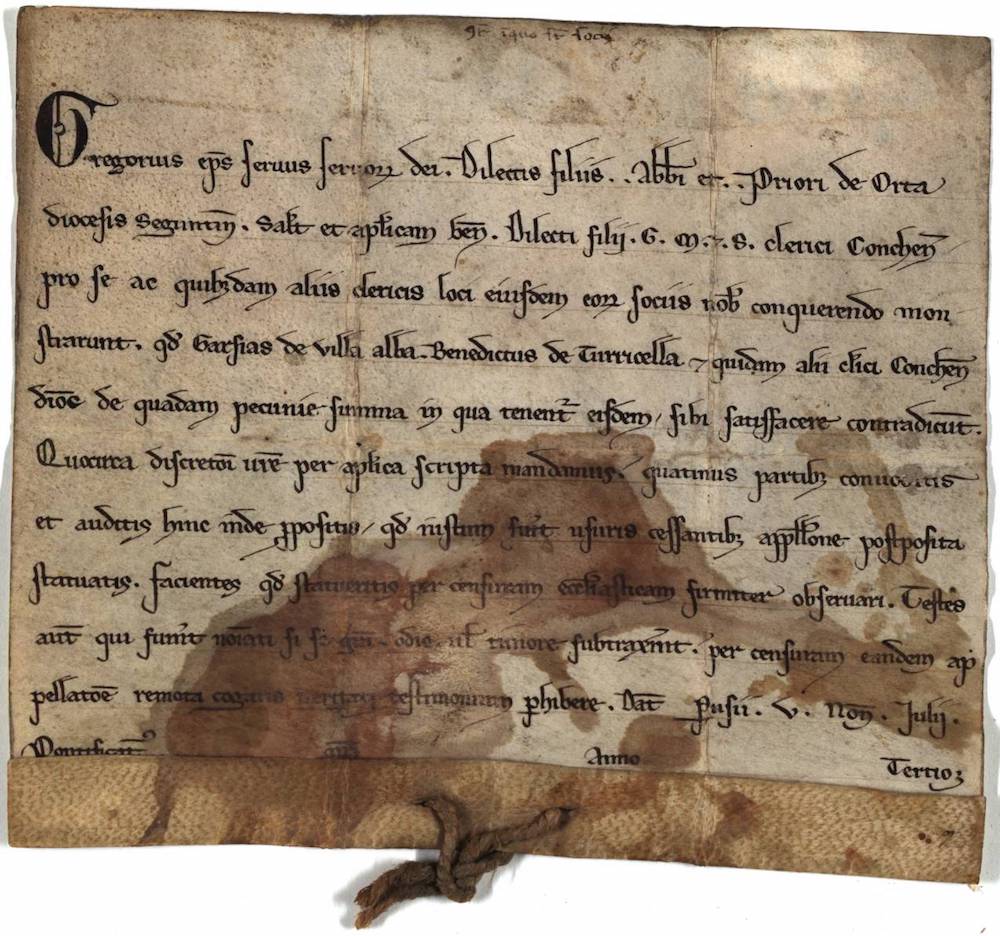 Gregorius ep̄s seruus seruoꝝ dei. Dilectis filiis .. Abb̄i et .. Priori de Orta
diocesis Seguntin̄. Sal̄t et apl̄icam ben̄. Dilecti filij .G. M. ⁊ .S. clerici Conchen̄
pro se ac quibꝫdam aliis clericis loci eiusdem eoꝝ sociis nob̄ conquerendo mon
strarunt. qd̄ Garsias de villa alba. Benedictus de Turricella ⁊ quidam alii cl̄ici Conchen̄
dioc̄ de quadam pecunie summa in qua tenent᷑ eisdem, sibi satisfacere contradicūt.
Quocirca discretōi ur̄e per apl̄ica scripta mandamus, quatinus partibꝫ conuocatis
et auditis hinc inde ꝓpositis, qd̄ iustum fuer̄it usuris cessantibꝫ appell̄one postposita
statuatis. facientes qd̄ statueritis per censuram ecc̄liasticam firmiter obseruari. Testes
aut̄ qui fuer̄int nōiati si se gr̄a. odio. ul̄ timore subtraxer̄int. per censuram eandem ap
pellatōe remota cogatis ueritati testimonium ꝑhibere. Dat̄ Perusii. v. Non̄. Julij.
Pontificat᷒ Anno Tertio;